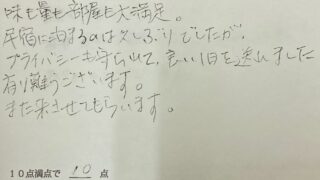 味も量も部屋も大満足。
民宿に泊まるのは久しぶりでしたが、
プライバシーも守られて、良い1日を送れました
有り難うございます。
また来させてもらいます。
10点満点で 10 点